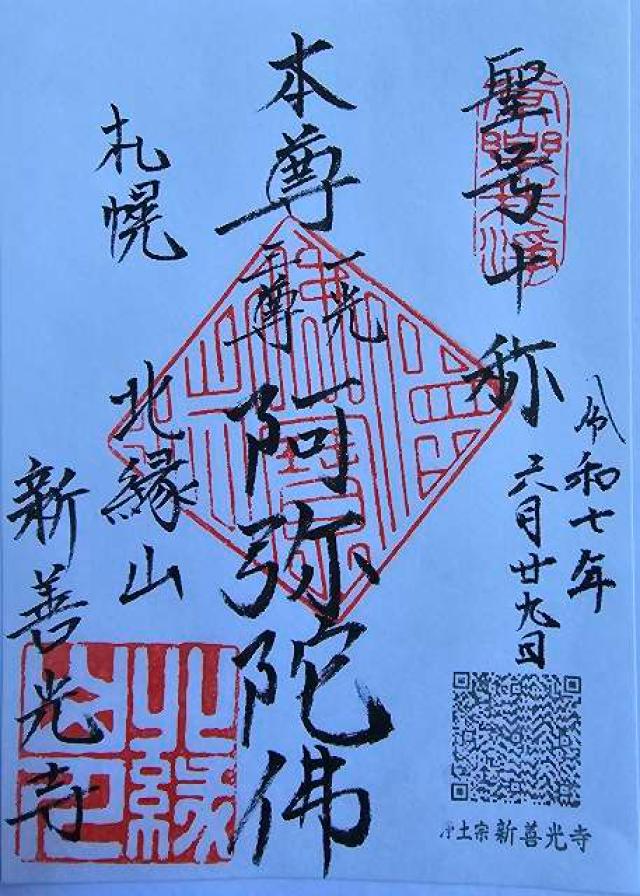 聖号十称
令和七年
六月廿九日
本尊
一光
三尊
阿弥陀佛
札幌
北縁山
新善光寺
北縁
浄土宗 新善光寺